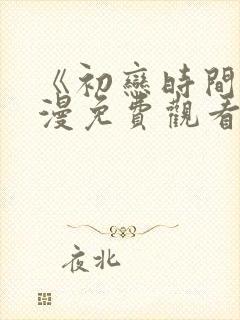 《初戀時間
漫免費觀看
夜北